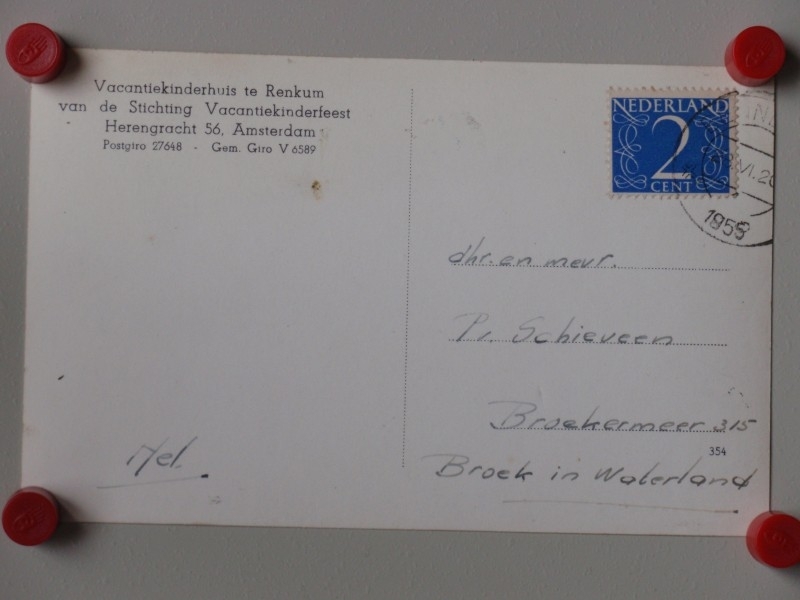 Vacantiekinderhuis te Renkum
van de Stichting Vacantiekinderfeest
Herengracht 56, Amsterdam
Postgiro 27648 - Gem. Giro V 6589
NEDERLAND
2
CENT
dhr. en mevr.
P. Schieveen
Broekermeer 315
354
Broek in Waterland
Nel.